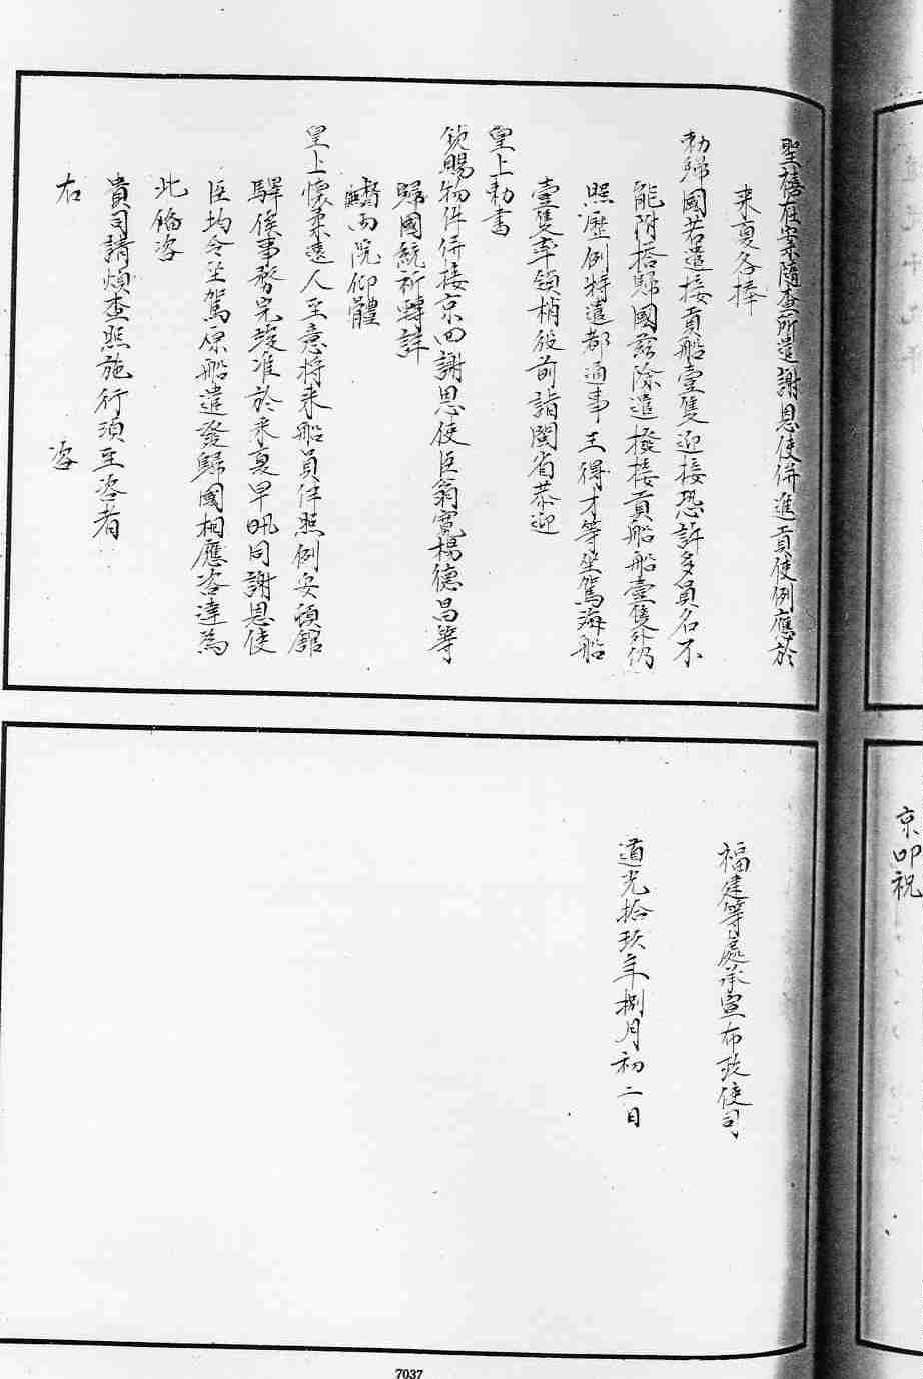 聖禧在案隨查所遣謝恩使併進貢使例應於
来夏各捧
勅歸國若遣接貢船壹隻迎接恐許多員名不
能附搭歸國茲除遣撥接貢船船壹隻外仍
照歷例特遣都通事王得才等坐駕海船
壹隻率領梢役前詣閩省恭迎
皇上勅書
欽賜物件併接京回謝恩使臣翁寬楊德昌等
歸國統祈轉詳
督撫兩院仰體
皇上懷柔遠人至意將来船員伴照例安頓館
驛俟事務完竣准於来夏早汛同謝恩使
臣均令坐駕原船遣發歸國相應咨達為
此備咨
貴司請煩查照施行須至咨者
右 咨
福建等處承宣布政使司
道光拾玖年捌月初二日
京叩祝
7037